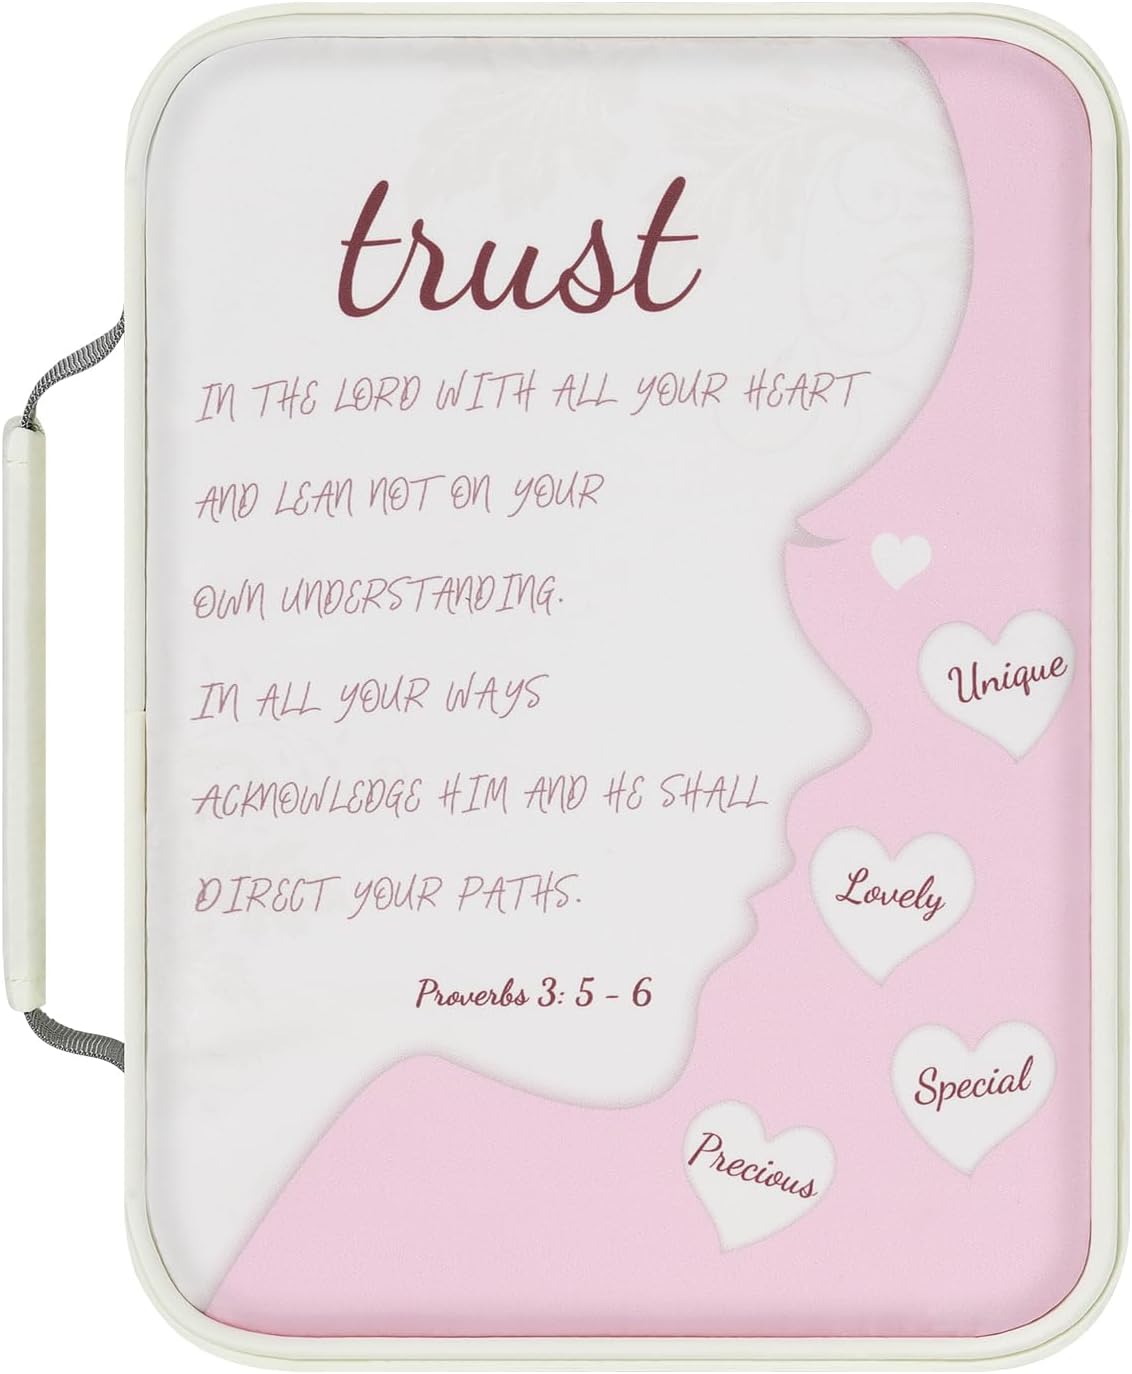 trust
IN THE LORD WITH ALL YOUR HEART
AND LEAN NOT ON YOUR
OWN UNDERSTANDING.
IN ALL YOUR WAYS
ACKNOWLEDGE HIM AND HE SHALL
DIRECT YOUR PATHS.
Proverbs 3: 5 - 6
Unique
Lovely
Special
Precious